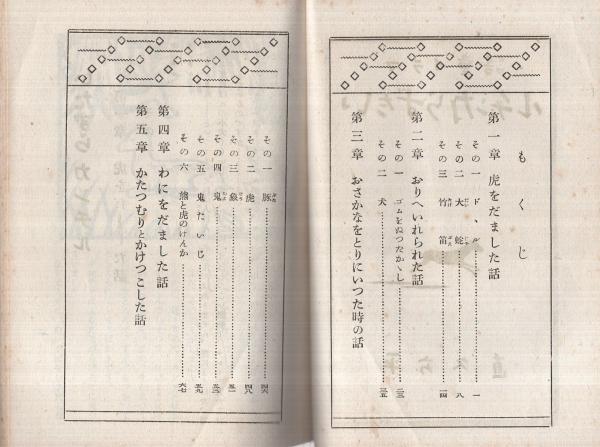 もくじ
第一章 虎をだました話
その一 ドル……一
その二 大蛇……八
その三 竹笛……一四
第二章 おりへいれられた話
その一 ゴムをぬつたかゝし……二三
その二 犬……三五
第三章 おさかなをとりにいつた時の話
その一 豚……四六
その二 虎……四八
その三 象……五一
その四 鬼……五三
その五 鬼たいじ……五九
その六 熊と虎のけんか……六七
第四章 わにをだました話
第五章 かたつむりとかけつこした話